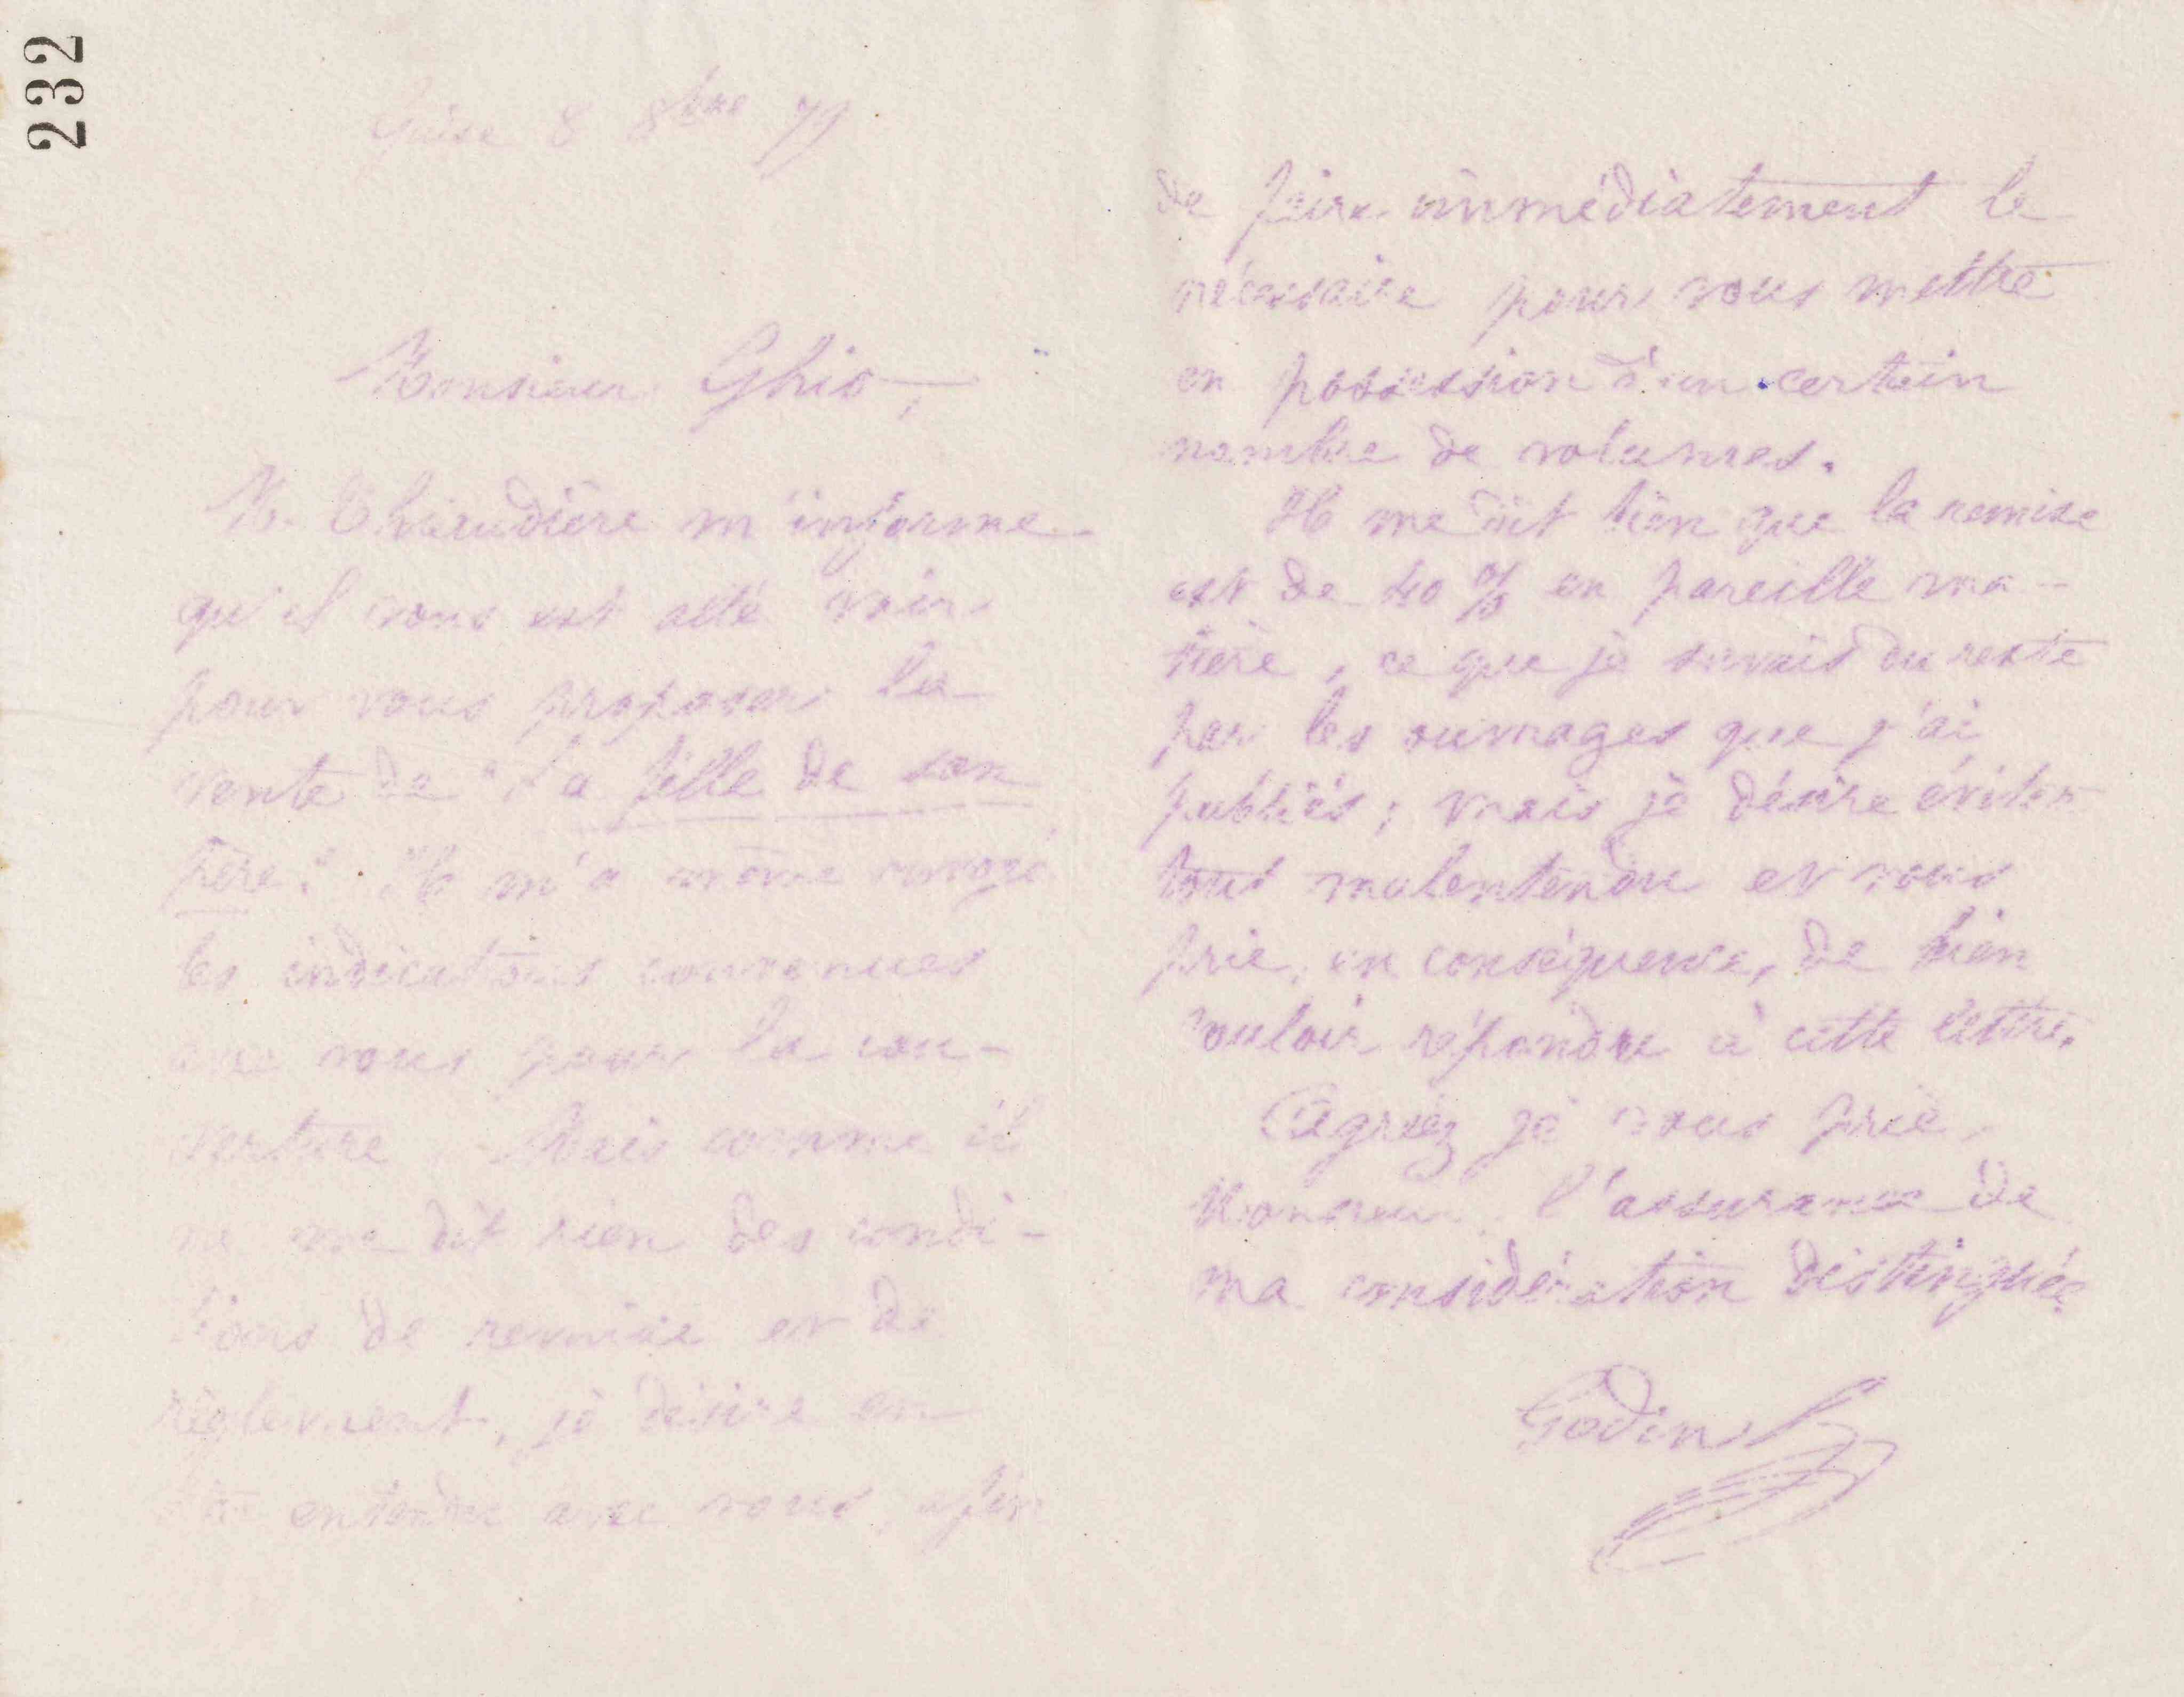 232
Guise 8 8bre 79
Monsieur Ghio,
M. Chaudière m'informe
qu'il vous est allé voir
pour vous proposer la
vente de "La fille de son
Père". Il m'a même envoyé
les indications convenues
avec vous pour la cou-
verture. Mais comme il
ne me dit rien des condi-
tions de remise et de
règlement, je désire en
entendre avec vous, afin
de faire immédiatement le
nécessaire pour vous mettre
en possession d'un certain
nombre de volumes.
Il me dit bien que la remise
est de 40 % en pareille ma-
tière, ce que je savais du reste
par les ouvrages que j'ai
publiés; mais je désire éviter
tout malentendu et vous
prie, en conséquence, de bien
vouloir répondre à cette lettre.
Agréez je vous prie,
Monsieur, l'assurance de
ma considération distinguée
Godin